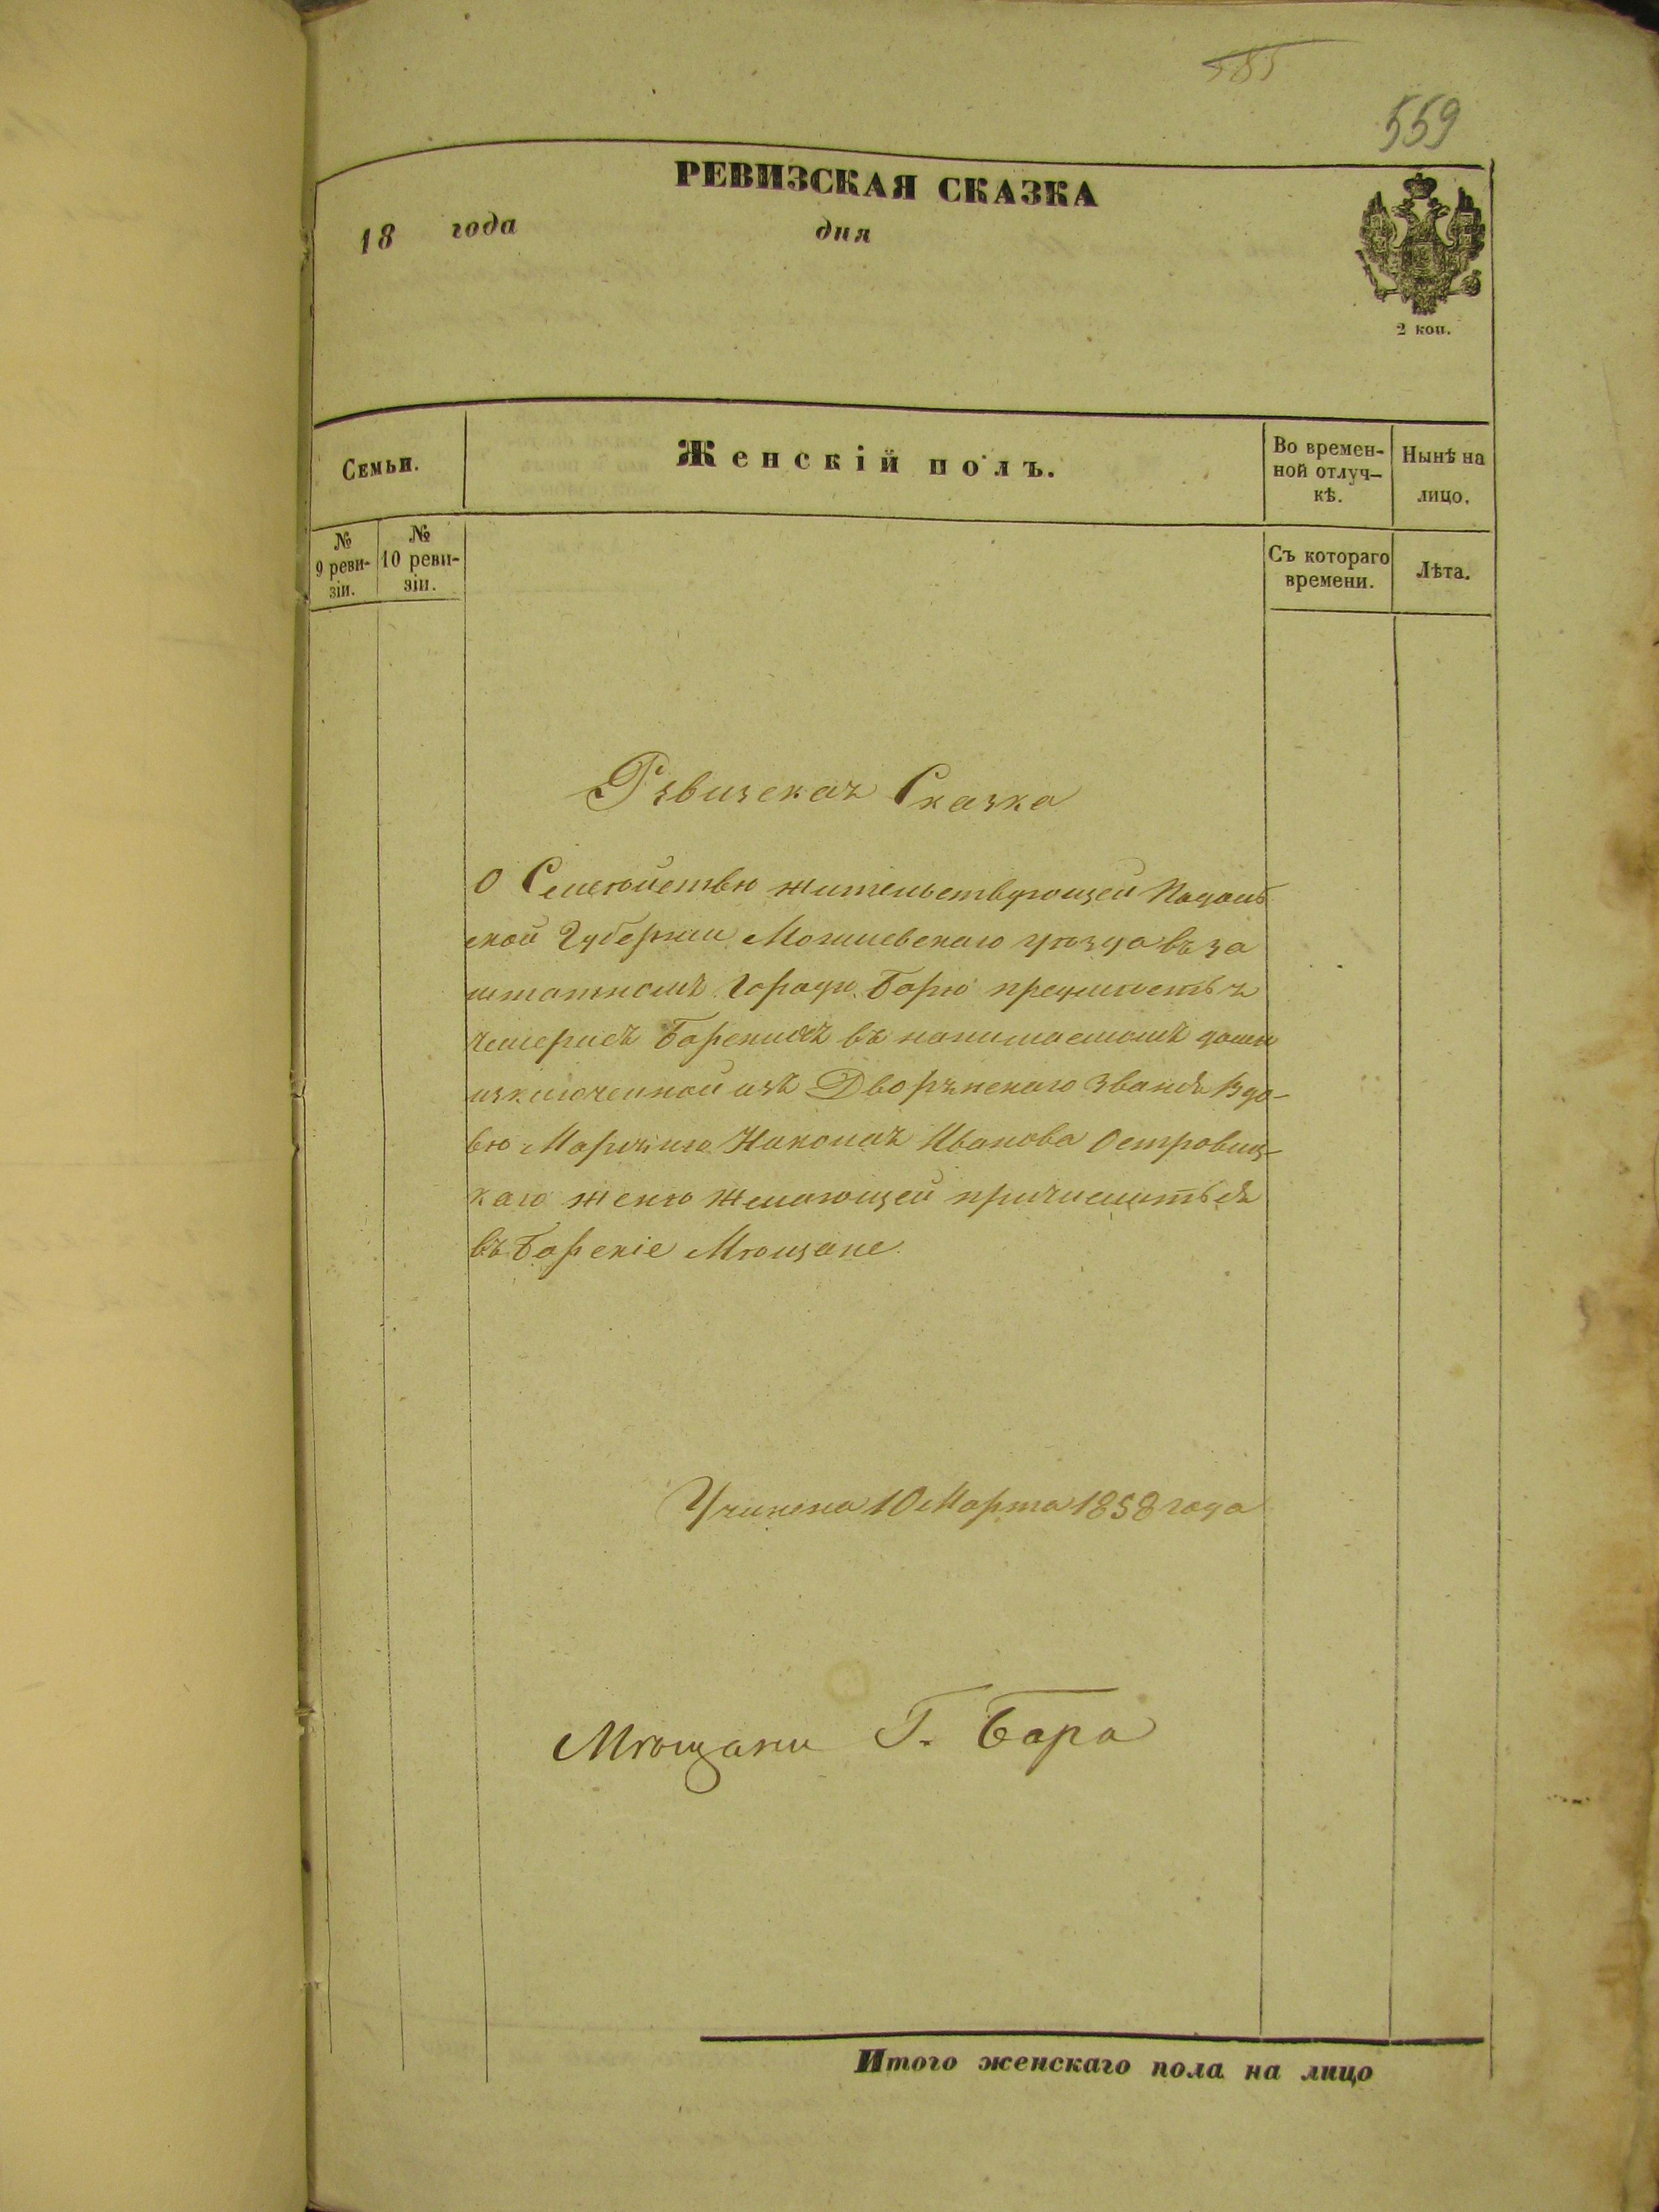 585
559
РЕВИЗСКАЯ СКАЗКА
18 года дня
2 коп.
Семьи.
Женскій полъ.
Во времен-
ной отлуч-
кѣ.
Нынѣ на
лицо.
№
9 реви-
зіи.
№
10 реви-
зіи.
Съ котораго
времени.
Лѣта.
Ревизская Сказка
О Семействѣ жительствующей Подоль
ской Губерніи Могилевскаго уѣзда въ за
штатномъ Городѣ Барѣ предмѣстья
Чемерисъ Барскихъ въ нанимаемомъ домѣ
изключенной изъ Дворянскаго Званія Вдо-
вѣ Николая Иванова Островиц-
каго женѣ желающей причислиться
въ Барскіе Мѣщане.
Учинена 10 Марта 1858 года
Мѣщани Г. Бара
Итого женскаго пола на лицо